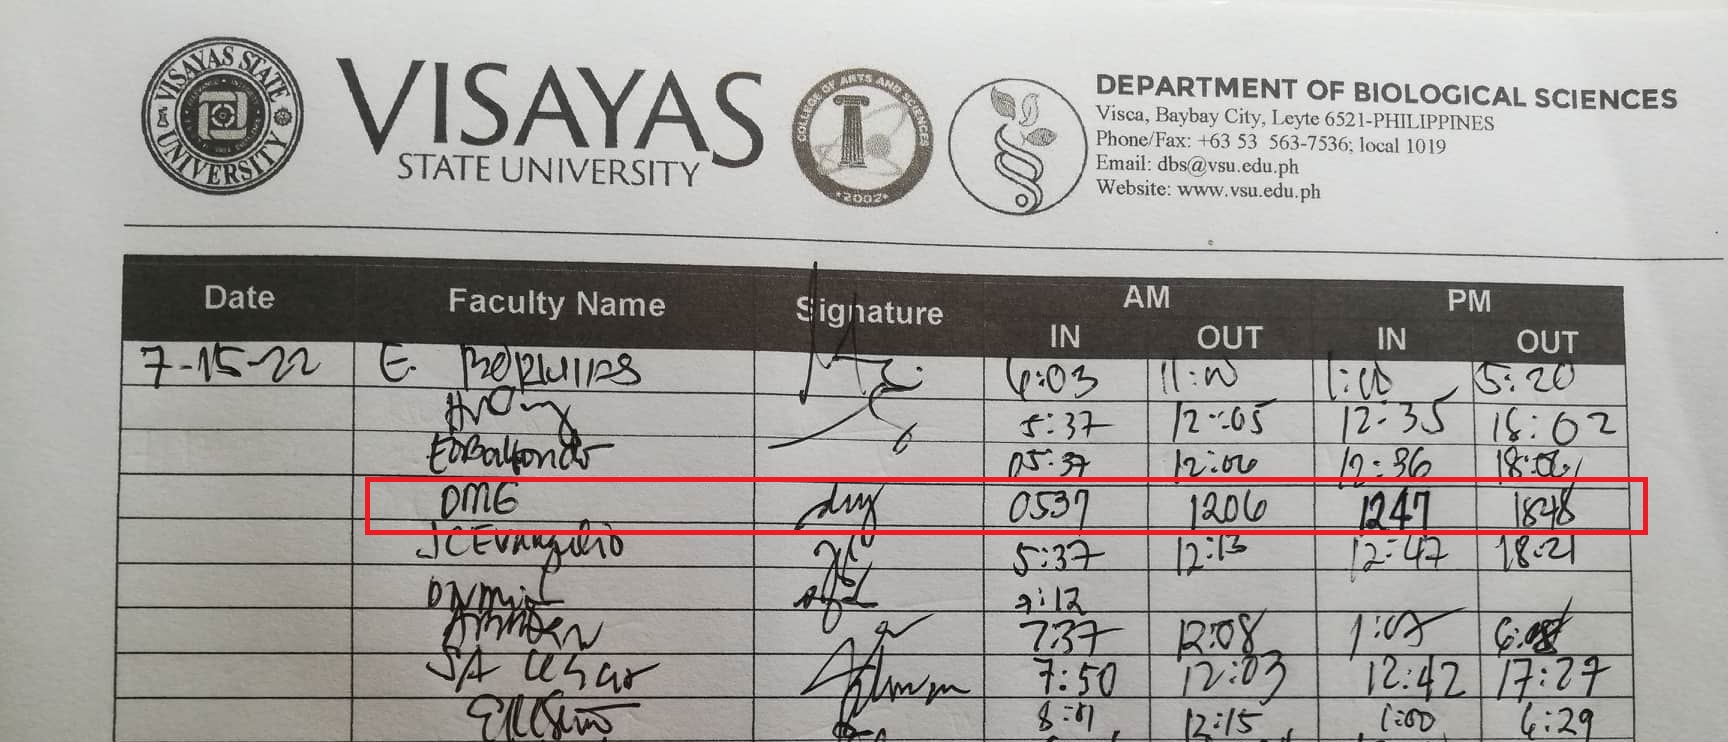 VISAYAS STATE UNIVERSITY
VISAYAS
STATE UNIVERSITY
COLLEGE OF ARTS AND SCIENCES
2002
DEPARTMENT OF BIOLOGICAL SCIENCES
Visca, Baybay City, Leyte 6521-PHILIPPINES
Phone/Fax: +63 53 563-7536; local 1019
Email: dbs@vsu.edu.ph
Website: www.vsu.edu.ph
Date Faculty Name Signature AM PM
IN OUT IN OUT
7-15-22 E. 6:03 11:00 1:00 5:20
5:37 12:05 12:35 18:02
05:37 12:06 12:36 18:06
DMG 0537 1206 1247 1848
JCEvangelio 5:37 12:13 12:47 18:21
9:12
7:37 12:08 1:07
SA Cesar 7:50 12:03 12:42 17:27
8:11 12:15 1:00 6:29